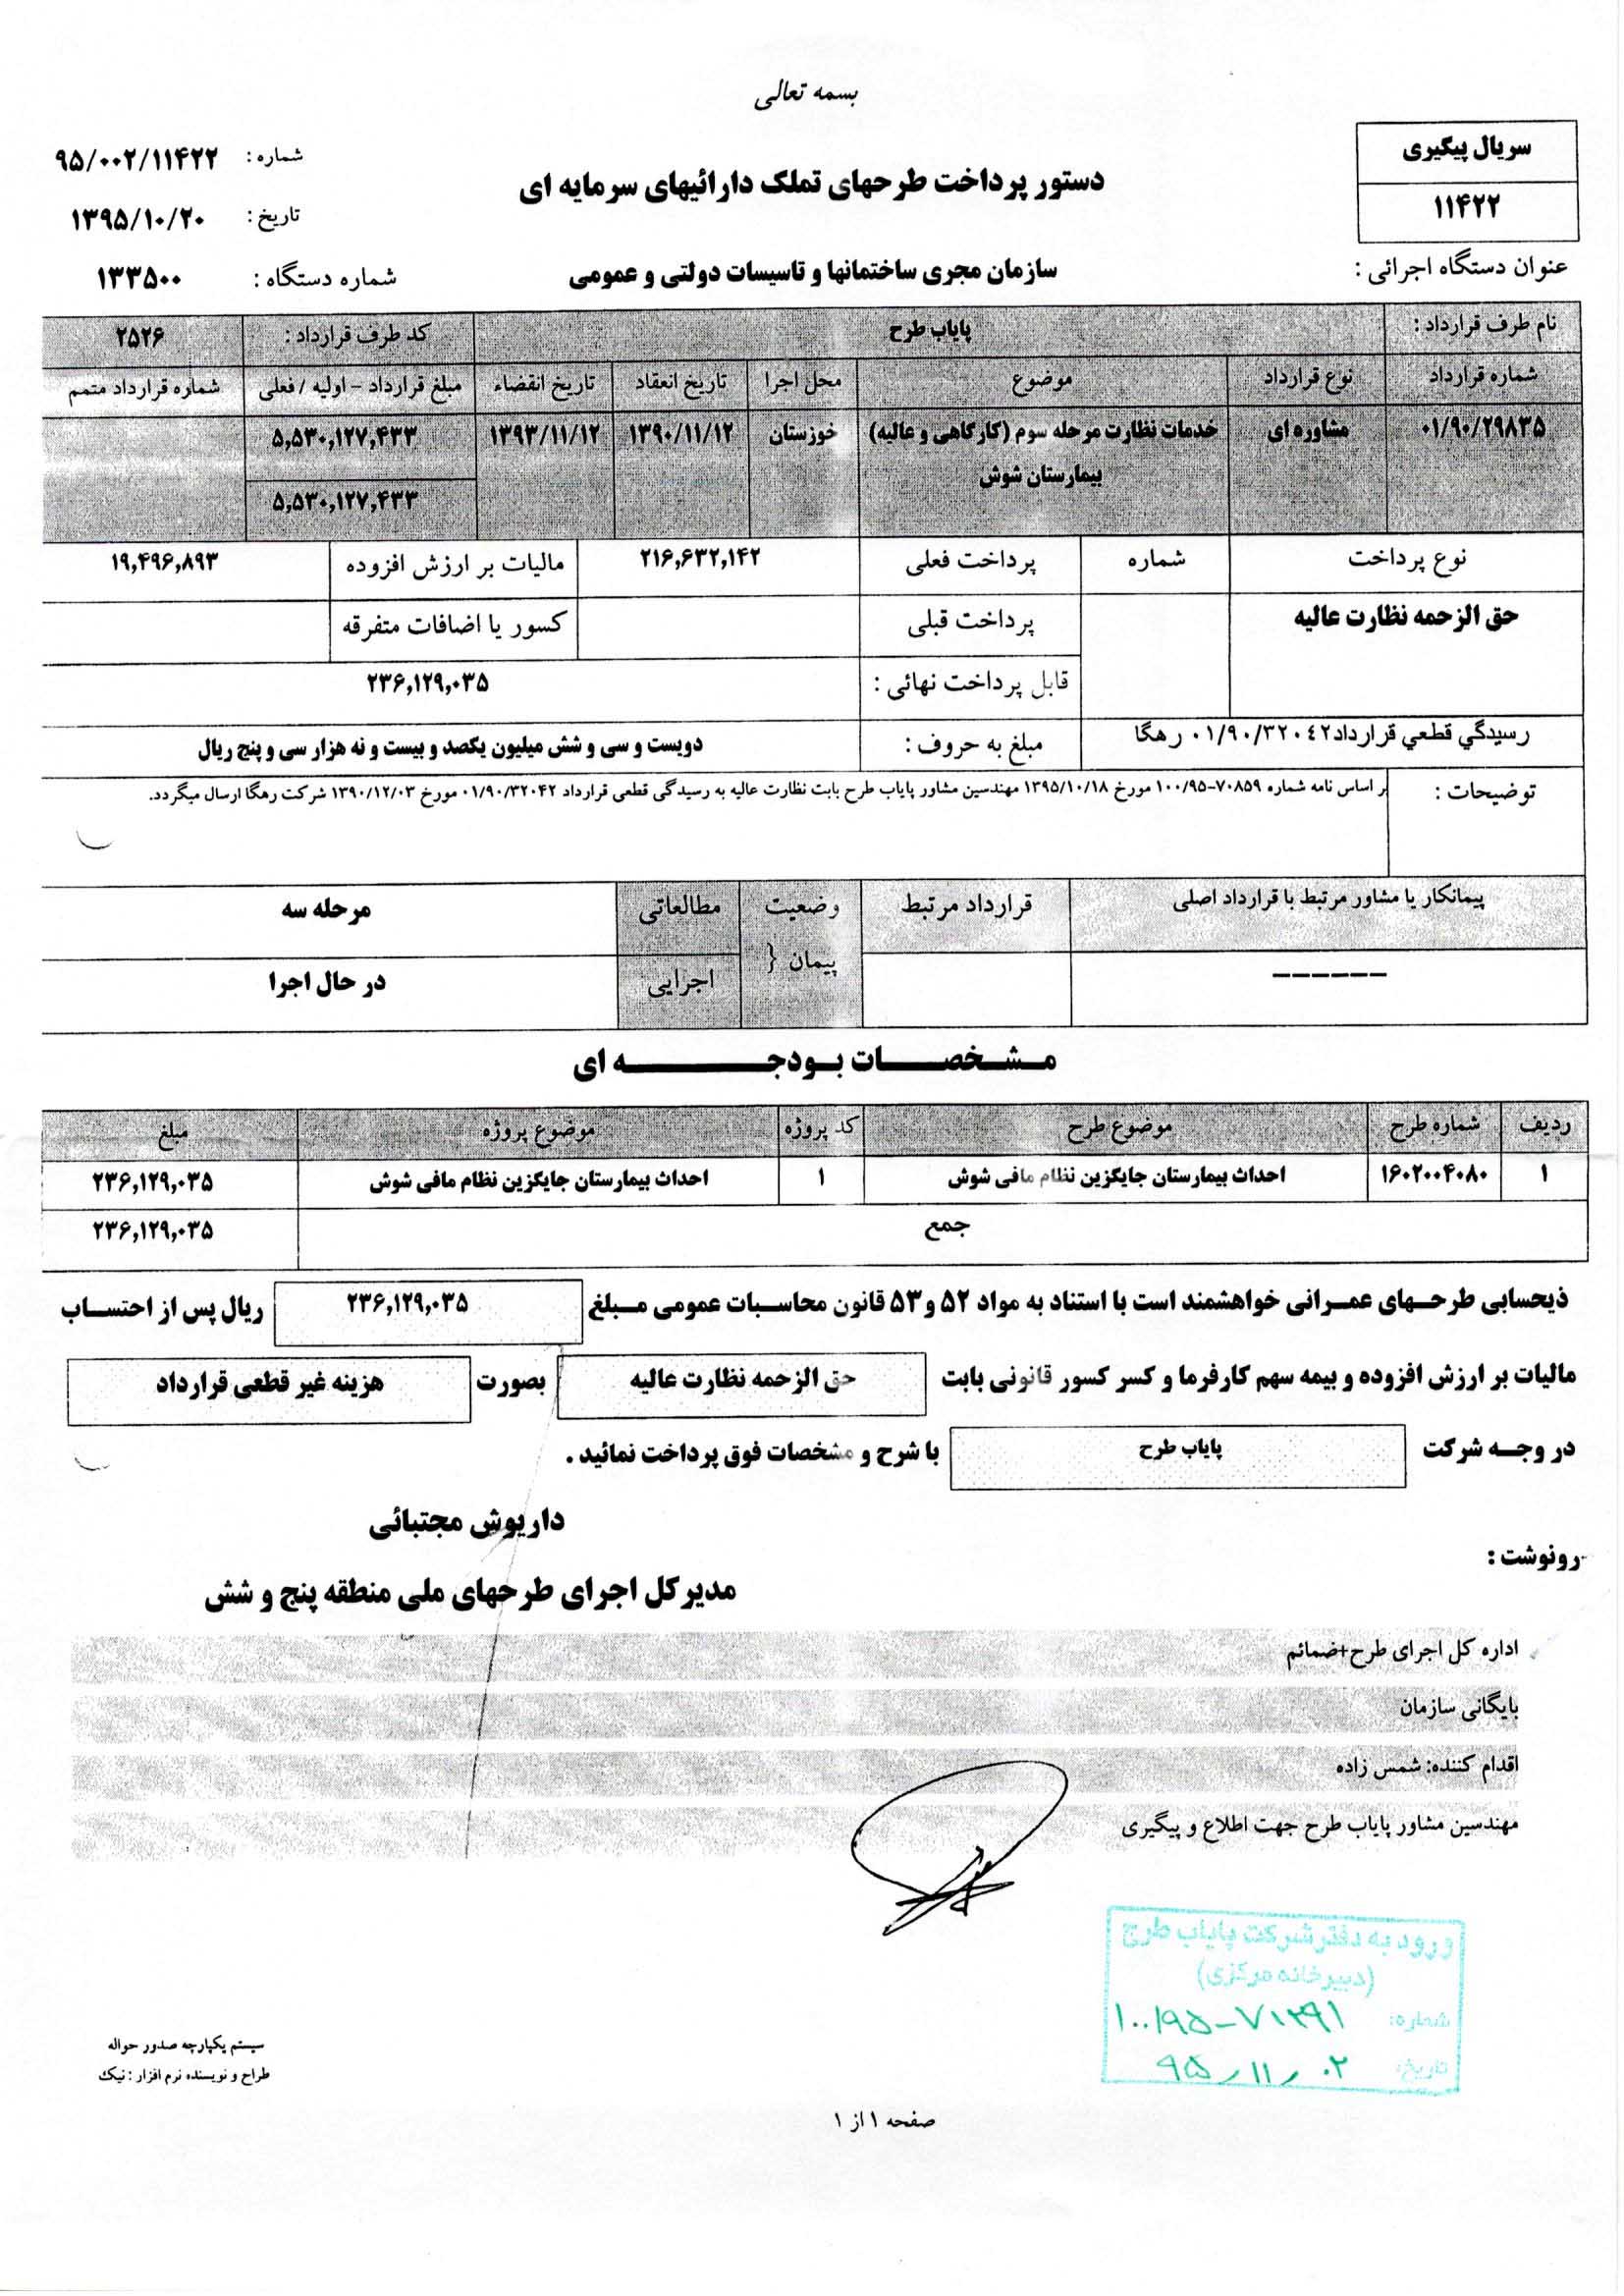 بسمه تعالی
سریال پیگیری
۱۱۴۲۲
دستور پرداخت طرحهای تملک دارائیهای سرمایه ای
شماره : ۹۵/۰۰۲/۱۱۴۲۲
تاریخ : ۱۳۹۵/۱۰/۲۰
عنوان دستگاه اجرائی : سازمان مجری ساختمانها و تاسیسات دولتی و عمومی شماره دستگاه : ۱۳۳۵۰۰
نام طرف قرارداد : پایاب طرح کد طرف قرارداد : ۲۵۲۶
شماره قرارداد نوع قرارداد موضوع محل اجرا تاریخ انعقاد تاریخ انقضاء مبلغ قرارداد - اولیه / فعلی شماره قرارداد متمم
۰۱/۹۰/۲۹۸۳۵ مشاوره ای خدمات نظارت مرحله سوم (کارگاهی و عالیه) خوزستان ۱۳۹۰/۱۱/۱۲ ۱۳۹۳/۱۱/۱۲ ۵,۵۳۰,۱۲۷,۴۳۳
بیمارستان شوش ۵,۵۳۰,۱۲۷,۴۳۳
نوع پرداخت شماره پرداخت فعلی ۲۱۶,۶۳۲,۱۴۲ مالیات بر ارزش افزوده ۱۹,۴۹۶,۸۹۳
حق الزحمه نظارت عالیه پرداخت قبلی کسور یا اضافات متفرقه
قابل پرداخت نهائی : ۲۳۶,۱۲۹,۰۳۵
رسیدگي قطعي قرارداد۰۱/۹۰/۳۲۰۴۲ رهگا مبلغ به حروف : دویست و سی و شش میلیون یکصد و بیست و نه هزار سی و پنج ریال
توضیحات : بر اساس نامه شماره ۷۰۸۵۹-۱۰۰/۹۵ مورخ ۱۳۹۵/۱۰/۱۸ مهندسین مشاور پایاب طرح بابت نظارت عالیه به رسیدگی قطعی قرارداد ۰۱/۹۰/۳۲۰۴۲ مورخ ۱۳۹۰/۱۲/۰۳ شرکت رهگا ارسال میگردد.
پیمانکار یا مشاور مرتبط با قرارداد اصلی قرارداد مرتبط وضعیت پیمان { مطالعاتی مرحله سه
------ اجرایی در حال اجرا
مـشـخصــات بـودجــــــه ای
ردیف شماره طرح موضوع طرح کد پروژه موضوع پروژه مبلغ
۱ ۱۶۰۲۰۰۴۰۸۰ احداث بیمارستان جایگزین نظام مافی شوش ۱ احداث بیمارستان جایگزین نظام مافی شوش ۲۳۶,۱۲۹,۰۳۵
جمع ۲۳۶,۱۲۹,۰۳۵
ذیحسابی طرحـهای عمـرانی خواهشمند است با استناد به مواد ۵۲ و ۵۳ قانون محاسـبات عمومی مـبلغ ۲۳۶,۱۲۹,۰۳۵ ریال پس از احتسـاب
مالیات بر ارزش افزوده و بیمه سهم کارفرما و کسر کسور قانونی بابت حق الزحمه نظارت عالیه بصورت هزینه غیر قطعی قرارداد
در وجـه شرکت پایاب طرح با شرح و مشخصات فوق پرداخت نمائید .
داریوش مجتبائی
مدیرکل اجرای طرحهای ملی منطقه پنج و شش
رونوشت :
اداره کل اجرای طرح+ضمائم
بایگانی سازمان
اقدام کننده: شمس زاده
مهندسین مشاور پایاب طرح جهت اطلاع و پیگیری
ورود به دفتر شرکت پایاب طرح
(دبیرخانه مرکزی)
شماره: ۱۰۰/۹۵-۷۱۲۹۱
تاریخ: ۹۵/۱۱/۰۲
سیستم یکپارچه صدور حواله
طراح و نویسنده نرم افزار : نیک
صفحه ۱ از ۱